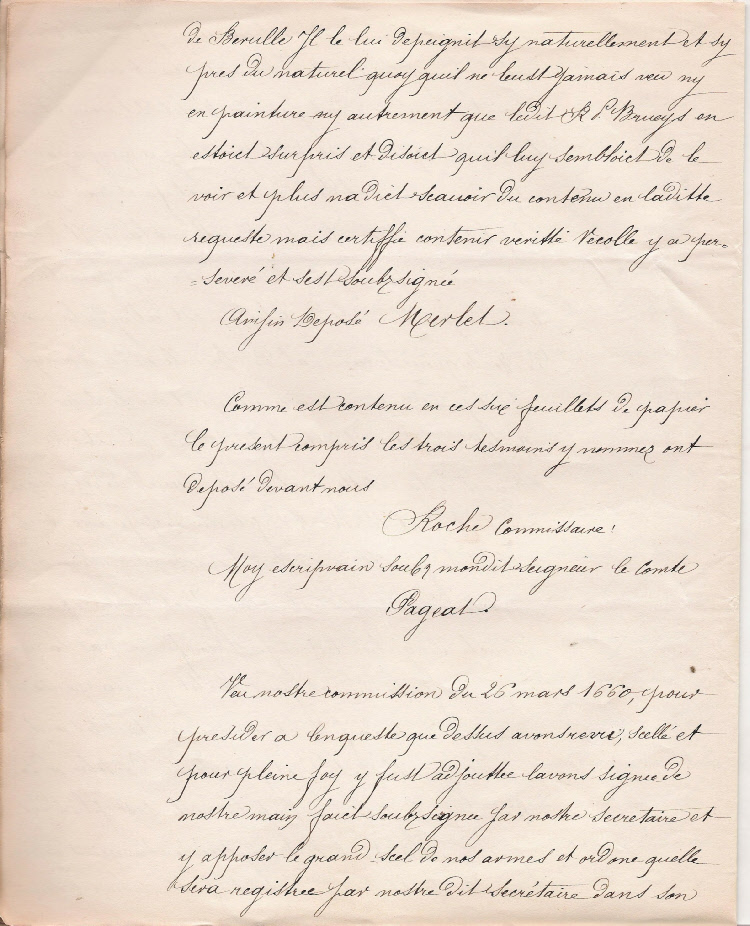 de Berulle Il le lui depeignit sy naturellement et sy
pres du naturel quoy quil ne leust jamais veu ny
en painture ny autrement que ledit R P Brueys en
estoict surpris et disoict quil luy sembloict de le
voir et plus na dict scauoir du contenu en laditte
requeste mais certiffie contenir veritté Recolle y a per=
=severé et sest soubzsigné
Ainsin Deposé Merlet.
Comme est contenu en ces six feuillets de papier
le present compris les trois tesmoins y nommez ont
deposé devant nous
Roche Commissaire!
Moy escripvain soubz mondit seigneur le Comte
Pageat
Veu nostre commission du 26 mars 1660, pour
presider a lenqueste que dessus avons reveu, scellé et
pour pleine foy y fust adjouttee lavons signee de
nostre main, faict soubzsignee par nostre secretaire et
y apposer le grand scel de nos armes et ordone quelle
sera registree par nostre dit secrétaire dans son